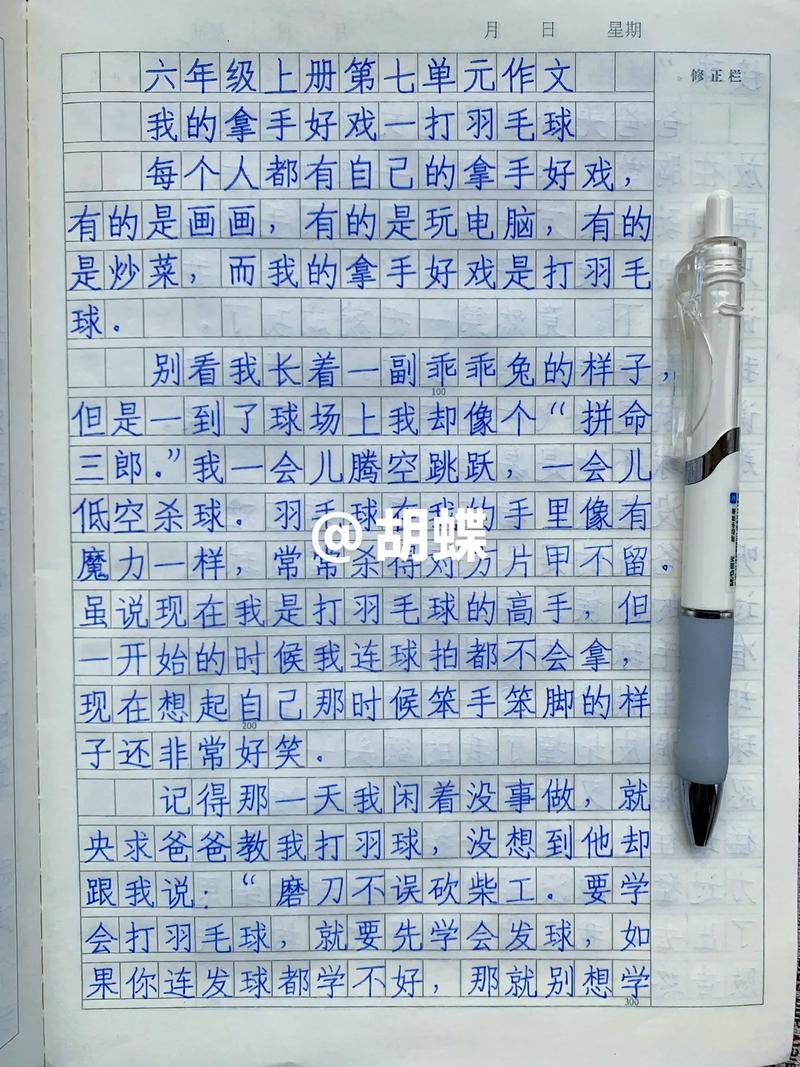 月 日 星期
修正栏
六年级上册第七单元作文
我的拿手好戏一打羽毛球
每个人都有自己的拿手好戏，
有的是画画，有的是玩电脑，有的
是炒菜，而我的拿手好戏是打羽毛
球。
别看我长着一副乖乖兔的样子，
100
但是一到了球场上我却像个“拼命
三郎。”我一会儿腾空跳跃，一会儿
低空杀球。羽毛球在我的手里像有
@胡蝶
魔力一样，常常杀得对方片甲不留。
虽说现在我是打羽毛球的高手，但
一开始的时候我连球拍都不会拿，
现在想起自己那时候笨手笨脚的样
200
子还非常好笑。
记得那一天我闲着没事做，就
央求爸爸教我打羽球，没想到他却
跟我说：“磨刀不误砍柴工。要学
会打羽毛球，就要先学会发球，如
果你连发球都学不好，那就别想学
300